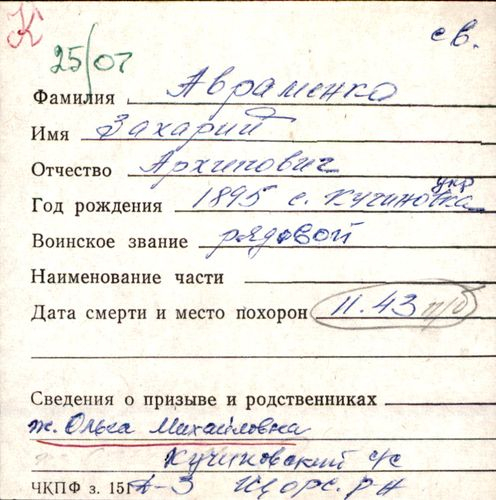 К
св.
25/07
Фамилия Авраменко
Имя Захарий
Отчество Архипович
укр
Год рождения 1895 с. Кучиновка
Воинское звание рядовой
Наименование части
Дата смерти и место похорон 11.43 п/б
Сведения о призыве и родственниках
ж. Ольга Михайловна
Кучиновский с/с
ЧКПФ з. 15 А-3 Щорс. р-н